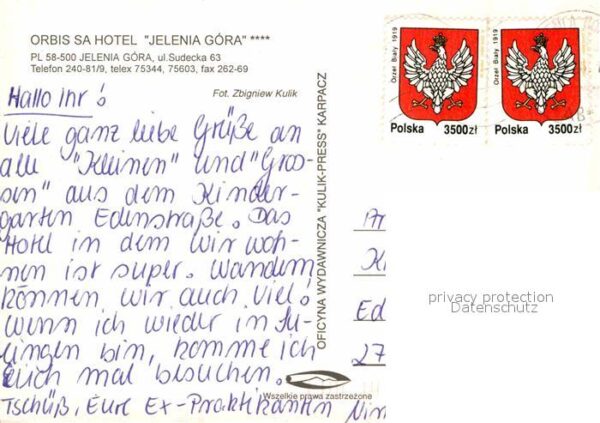 ORBIS SA HOTEL "JELENIA GÓRA" ****
PL 58-500 JELENIA GÓRA, ul.Sudecka 63
Telefon 240-81/9, telex 75344, 75603, fax 262-69
Fot. Zbigniew Kulik
Hallo Ihr!
Viele ganz liebe Grüße an
alle "Kleinen" und "Gros-
sen" aus dem Kinder-
garten Edenstraße. Das
Hotel in dem wir woh-
nen ist super. Wandern
können wir auch viel!
Wenn ich wieder in
lingen bin, komme ich
Euch mal besuchen.
Tschüß, Eure Ex-Praktikantin
OFICYNA WYDAWNICZA "KULIK-PRESS" KARPACZ
Wszelkie prawa zastrzeżone
Orzeł Biały 1919
Polska 3500zł
Orzeł Biały 1919
Polska 3500zł
Ed
27
privacy protection
Datenschutz